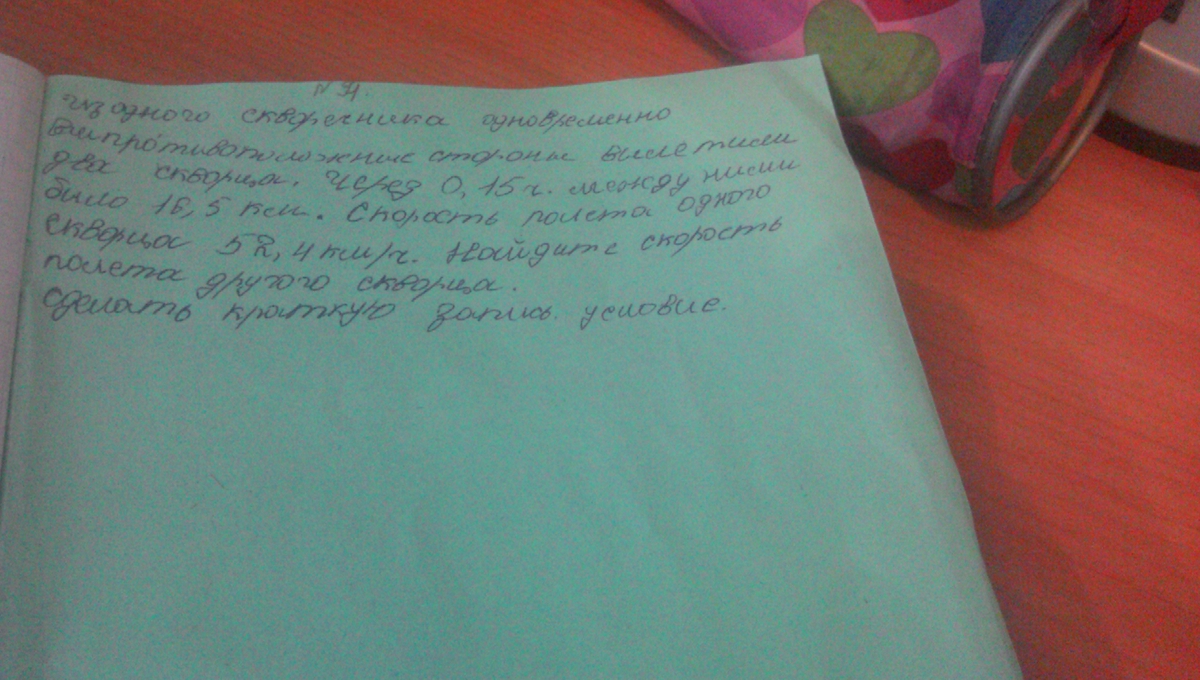 из одного скворечника одновременно
в противоположные стороны вылетили
два скворца. Через 0,15 ч. между ними
было 16,5 км. Скорость полета одного
скворца 52,4 км/ч. Найдите скорость
полета другого скворца.
Сделать краткую запись. условие.